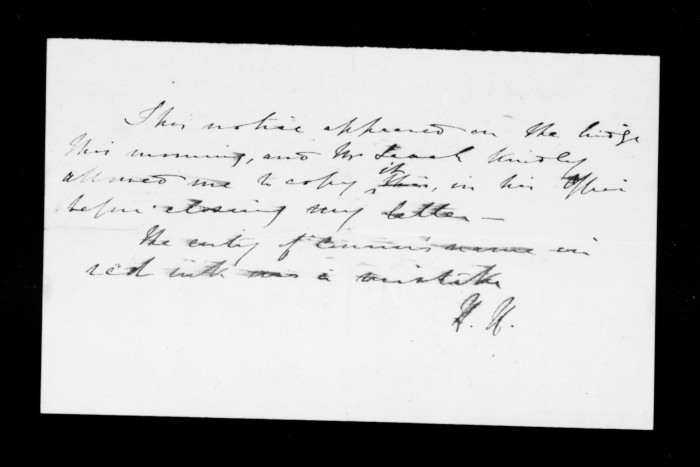 This notice appeared on the bridge
this morning, and Mr Leach kindly
allowed me to copy it, in his office
before closing my letter —
The entry of name in
red ink was a mistake
H. H.